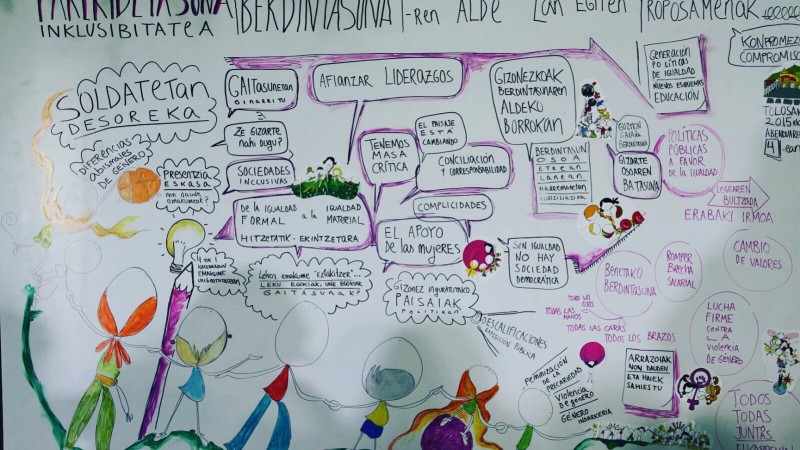 BERDINTASUNA -REN ALDE LAN EGITEN PROPOSAMENAK
INKLUSIBITATEA
KONPROMEZU
COMPROMISO
TOLOSA
2015
ABENDUAREN
4
SOLDATETAN
DESOREKA
DIFERENCIAS
abismales
DE GÉNERO
PRESENTZIA
ESKASA
non daude
emakumeak?
GAITASUNETAN
ZE GIZARTE
nahi dugu?
SOCIEDADES
INCLUSIVAS
DE LA IGUALDAD a la IGUALDAD
FORMAL MATERIAL
HITZETATIK-EKINTZETARA
AFIANZAR LIDERAZGOS
TENEMOS
MASA
CRÍTICA
EL PAISAJE
ESTÁ
CAMBIANDO
CONCILIACIÓN
Y CORRESPONSABILIDAD
COMPLICIDADES
EL APOYO
DE las mujeres
LEKU EGOKIAK, UNE EGOKIAK
GAITASUNAK?
GIZONEZ inguratutako
PAISAIAK
POLITIKAN
DESCALIFICACIONES
GIZONEZKOAK
BERDINTASUNAREN
ALDEKO
BORROKAN
BERDINTASUN
OSOA
ETXEAN
LANEAN
HARREMANETAN
GIZARTE
OSOAREN
BATASUNA
SIN IGUALDAD
NO HAY
SOCIEDAD
DEMOCRÁTICA
GENERACIÓN
POLÍTICAS
DE IGUALDAD
NUEVOS ESQUEMAS
EDUCACIÓN
POLÍTICAS
PÚBLICAS
A FAVOR
DE LA IGUALDAD
LEGEAREN
BULTZADA
ERABAKI IRMOA
BENETAKO
BERDINTASUNA
ROMPER
BRECHA
SALARIAL
CAMBIO
DE VALORES
LUCHA
FIRME
CONTRA
LA
violencia
DE GÉNERO
TODOS
LOS OJOS
TODAS LAS
MANOS
TODAS LAS CARAS
TODOS LOS BRAZOS
ARRAZOIAK
NON DAUDEN
ETA HAIEK
SAIHESTU
FEMINIZACIÓN
DE LA
PRECARIEDAD
violencia
de género
GÉNERO
INDARKERIA
TODOS
TODAS
JUNT@S
ELKARREKIN